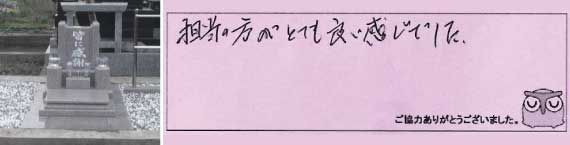 皆に感謝
担当の方がとても良い感じでした。
ご協力ありがとうございました。